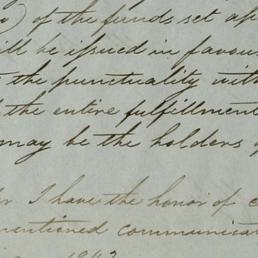 ) of the funds set ap
ill be issued in favou
t the punctuality with
d the entire fulfillment
may be the holders
r I have the honor of
mentioned communicat
1842